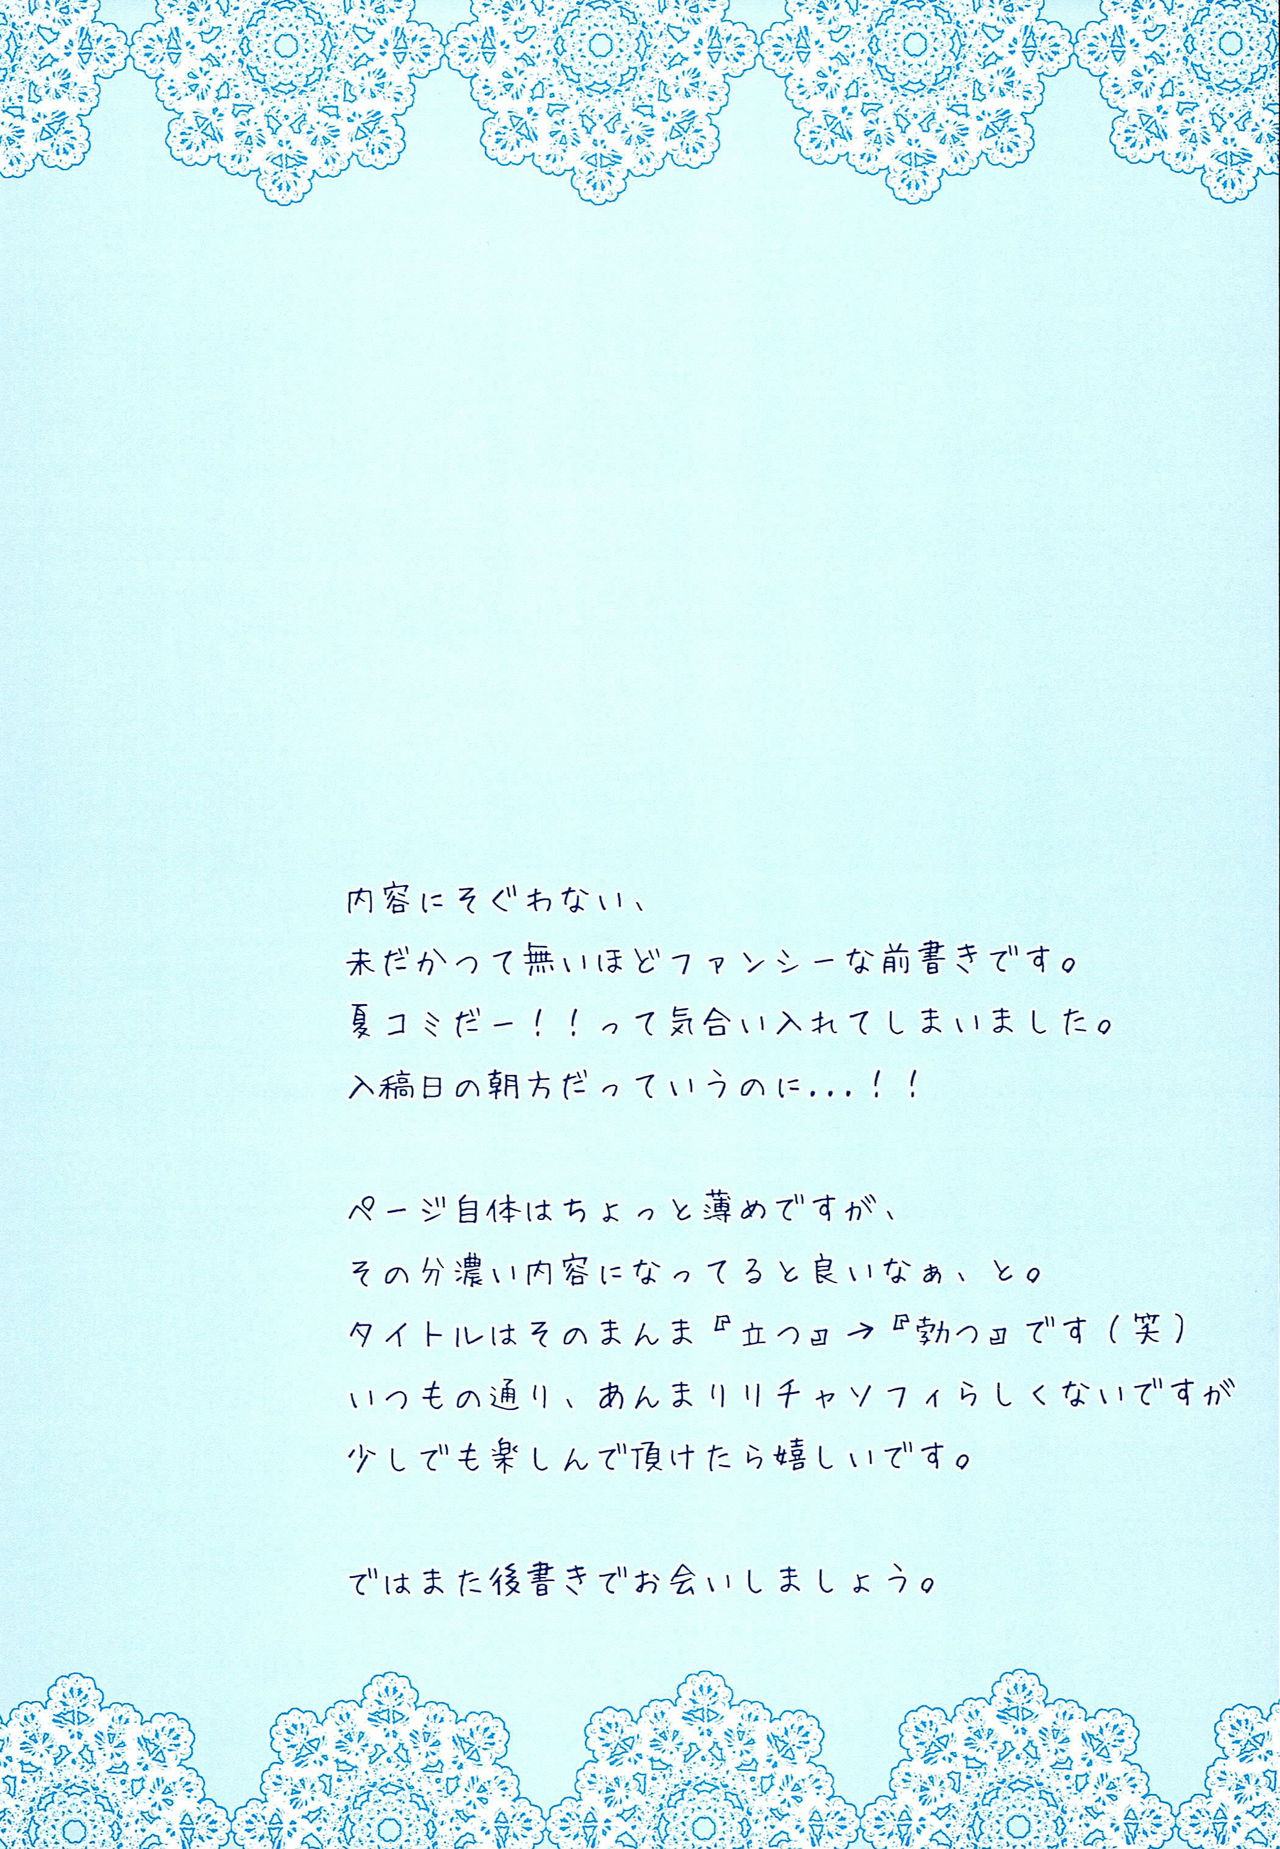 内容にそぐわない、
未だかつて無いほどファンシーな前書きです。
夏コミだー！！って気合い入れてしまいました。
入稿日の朝方だっていうのに...！！
ページ自体はちょっと薄めですが、
その分濃い内容になってると良いなぁ、と。
タイトルはそのまんま『立つ』→『勃つ』です（笑）
いつもの通り、あんまりリチャソフィらしくないですが
少しでも楽しんで頂けたら嬉しいです。
ではまた後書きでお会いしましょう。